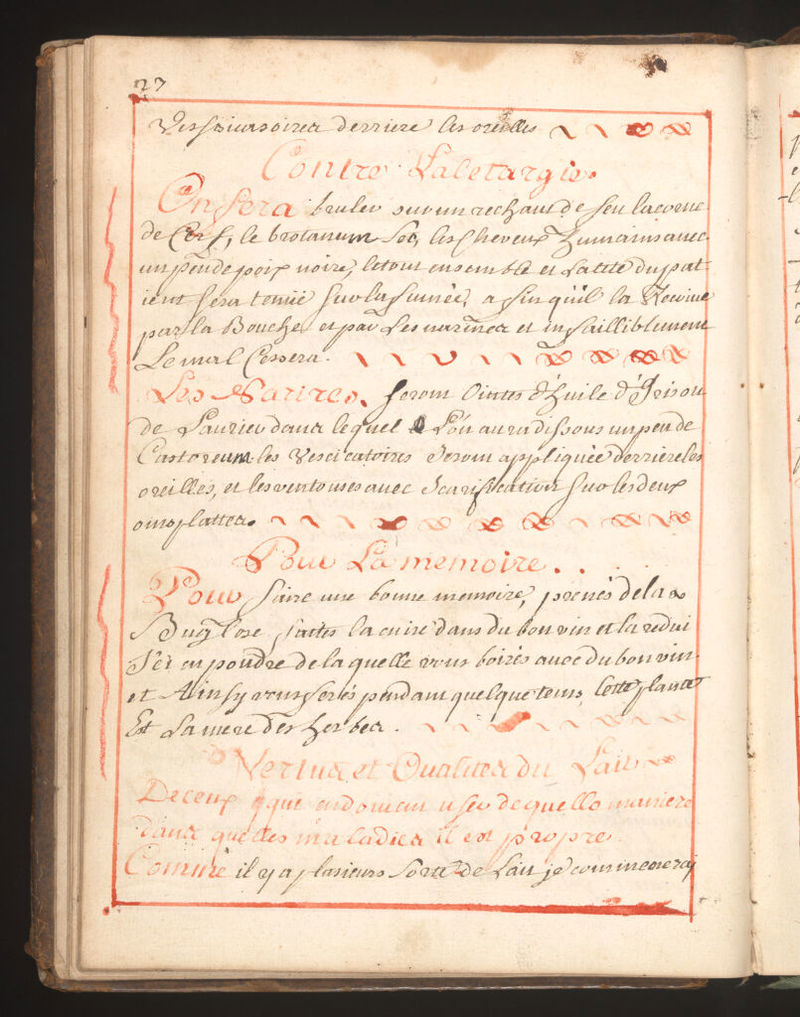 27
derriere les oreilles
Contre Laletargie.
On fera bruler sur un rechaut de feu lacorne
de Cerf, le brotanum Sec, les Cheveux humains avec
un peu de poix noire, letout ensemble et Latete du pat
ient sera tenüe sur la fumée, afin quil la Recoive
par la Bouche et par Les narines et infailliblement
Le mal Cessera.
Les Narires. seront Ointes d'huile d'Iris ou
de Laurier dans lequel Lon aura dissous un peu de
Castoreum les Vesicatoires Seront appliquée derriere les
oreilles, et les ventouses avec Scarification sur les deux
omoplattes
Pour La memoire.
Pour faire une bonne memoire, prenés de la
Buglose, faites la cuire dans du bon vin et la redui
en poudre de la quelle vous boirés avec du bon vin
et Ainsy vous ferés pendant quelque tems, Cette plante
Est La mere des herbes.
Vertus et Qualites du Lait
De ceux qui en doivent user de quelle maniere
dans quelles maladies il est propre.
Comme il y a plusieurs Sorte de Lait je commenceray